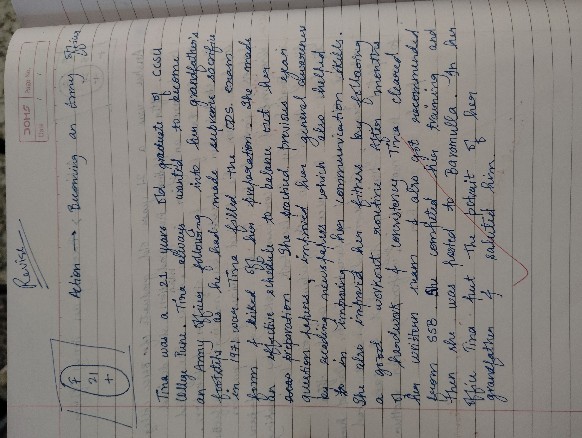 Revise
DOMS
F
21
+
Action → Becoming an Army officer
Tina was a 21 years old graduate of CCSU
College Pune. Tina always wanted to become
an Army officer following into her grandfather's
footsteps as he had made supreme sacrifice
in 1971 war. Tina filled the CDS exam
form & kicked off her preparation. She made
an effective schedule to balance out her
preparation. She solved previous year
question papers, improved her general awareness
by reading newspapers which also helped
in improving her communication skills.
She also improved her fitness by following
a good workout routine. After months
of hardwork & consistency Tina cleared
her written exam & also got recommended
from SSB. She completed her training and
then she was posted to Baramulla. In her
office Tina put the potrait of her
grandfather & saluted him